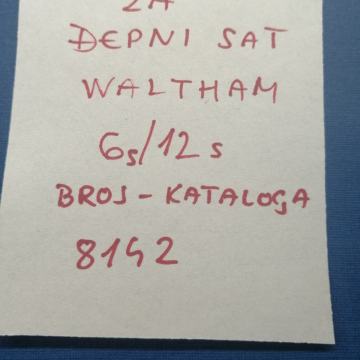 ZA
ĐEPNI SAT
WALTHAM
6s/12 s
BROJ - KATALOGA
8142